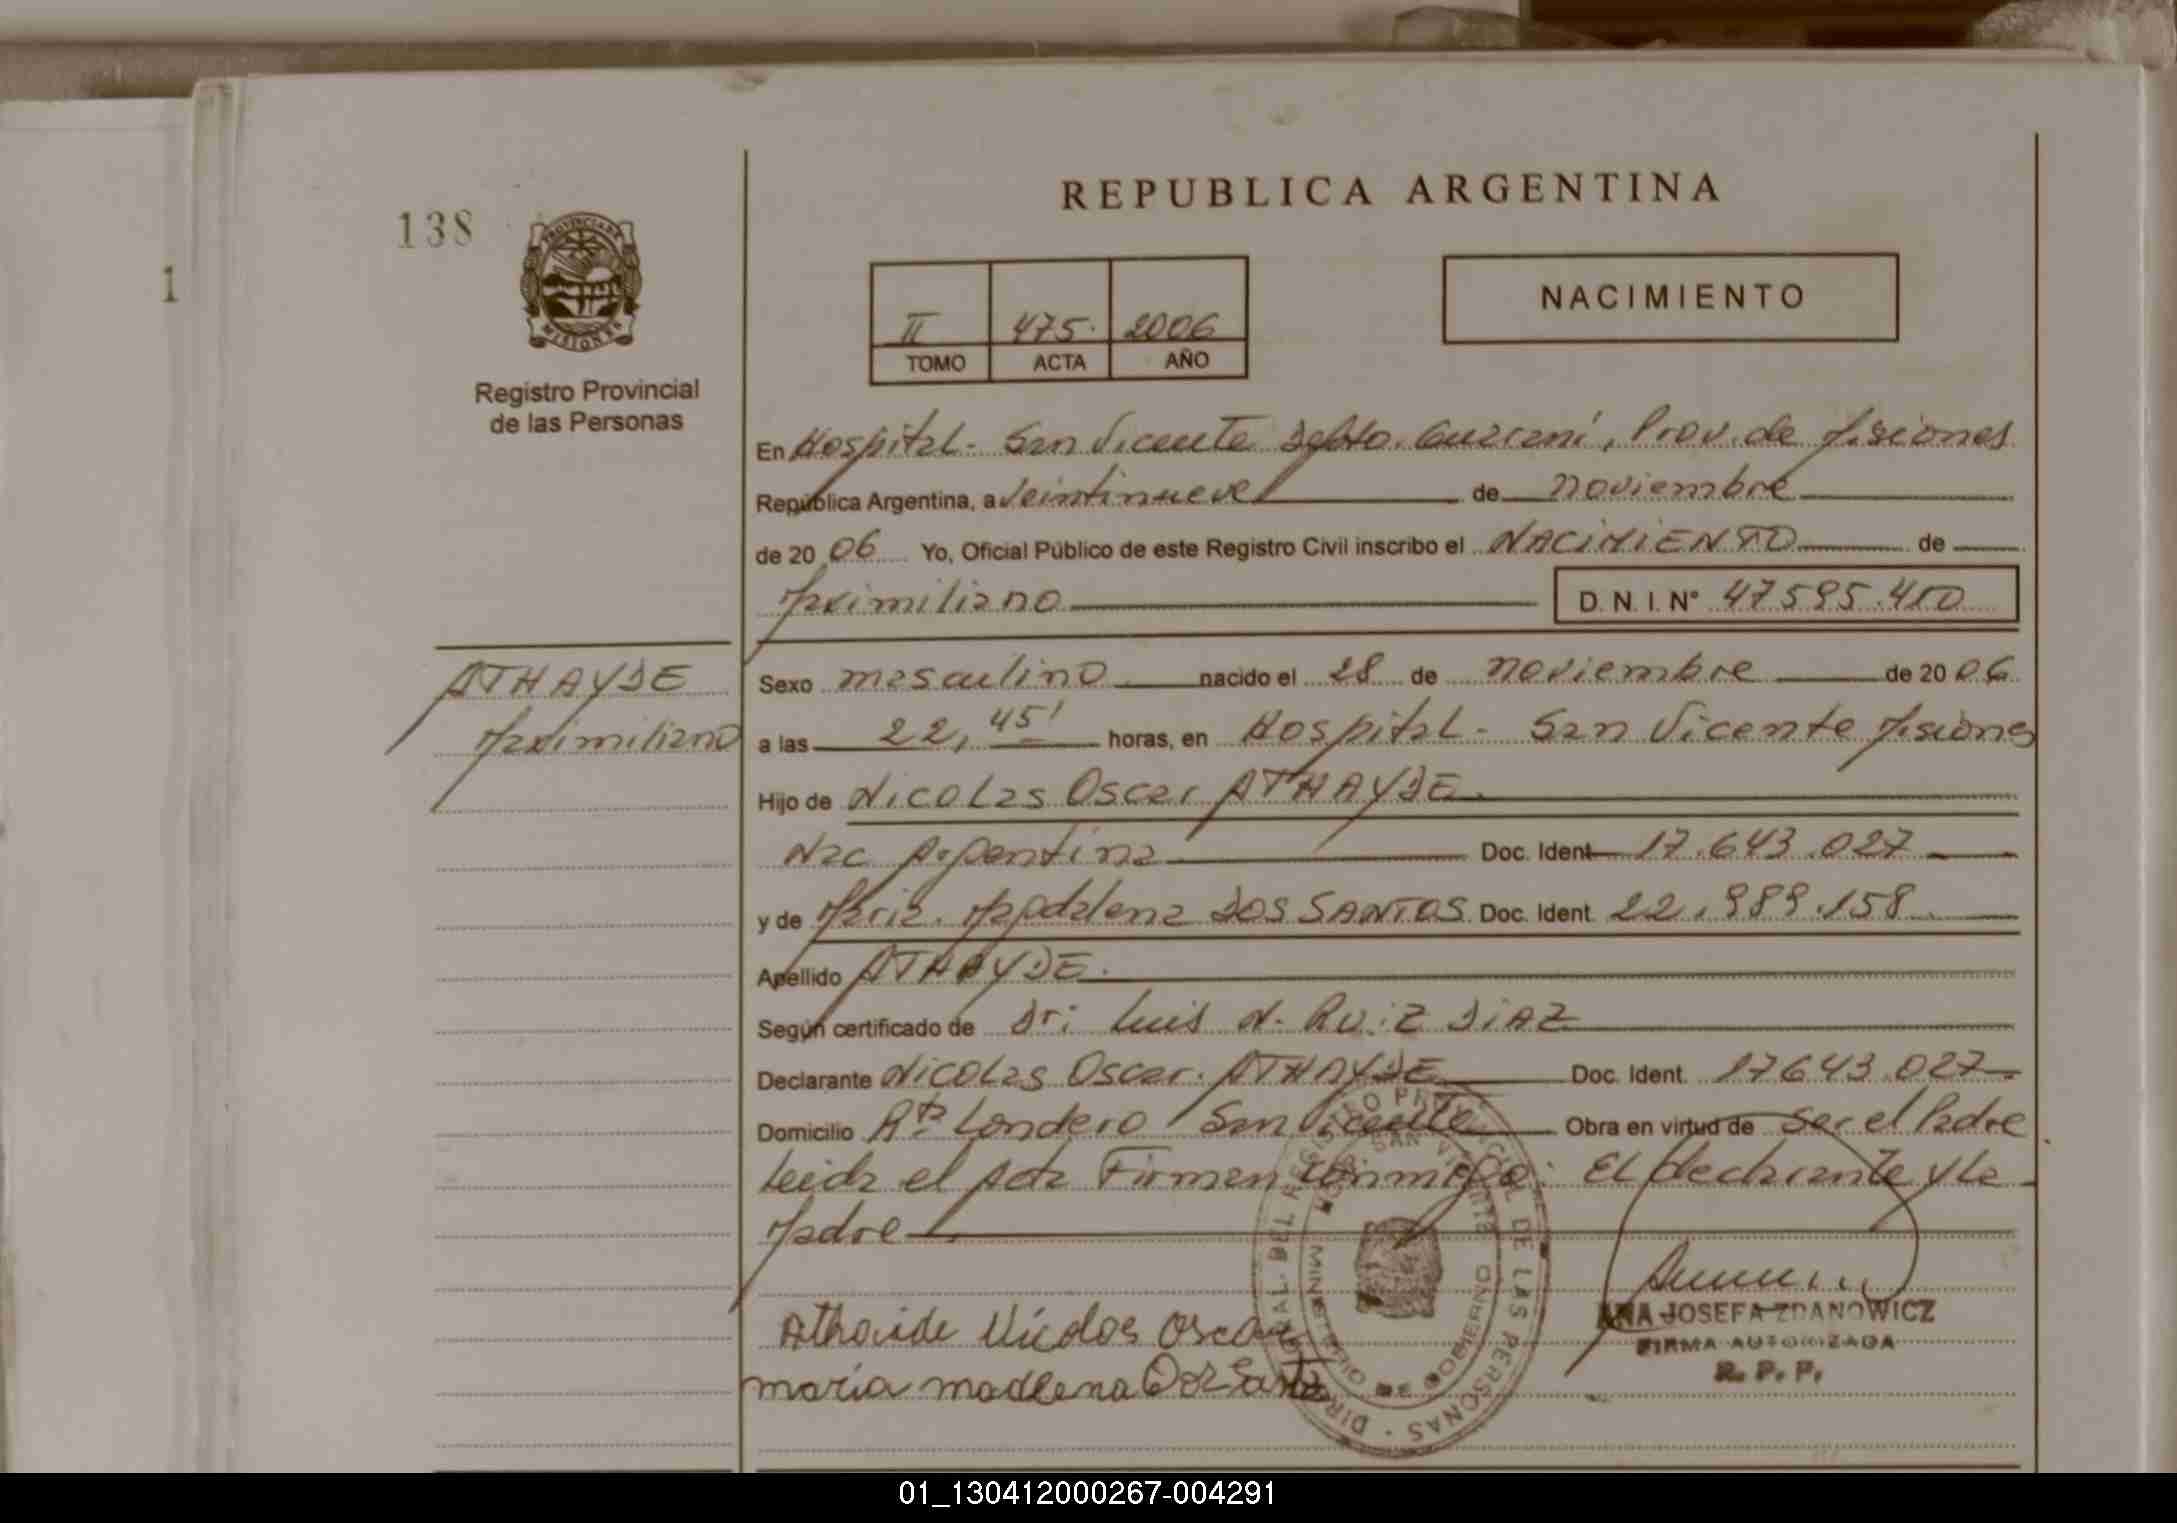 REPUBLICA ARGENTINA
138
1
PROVINCIA DE
MISIONES
Registro Provincial
de las Personas
II 475. 2006
TOMO ACTA AÑO
NACIMIENTO
En Hospital - San Vicente Depto. Guaraní, Prov. de Misiones
República Argentina, a Veintinueve de noviembre
de 20 06 Yo, Oficial Público de este Registro Civil inscribo el NACIMIENTO de
Maximiliano D. N. I. N° 47595.450
ATHAYDE
Maximiliano
Sexo masculino nacido el 28 de noviembre de 20 06
a las 22,45' horas, en Hospital - San Vicente Misiones
Hijo de Nicolas Oscar ATHAYDE.
Nac. Argentina Doc. Ident. 17.643.027
y de Maria Magdalena DOS SANTOS Doc. Ident. 22.989.158
Apellido ATHAYDE.
Según certificado de Dr: Luis N. RUIZ DIAZ
Declarante Nicolas Oscar ATHAYDE Doc. Ident. 17643.027
Domicilio Rta Londero San Vicente Obra en virtud de Ser el Padre
Leida el Acta Firman conmigo: El declarante y la
Madre
Athaide Nícolas Oscar
maría madlena Dos Santo
DIR. GRAL. DEL REGISTRO PROVINCIAL DE LAS PERSONAS
MINISTERIO DE GOBIERNO
ANA JOSEFA ZDANOWICZ
FIRMA AUTORIZADA
R. P. P.
01_130412000267-004291